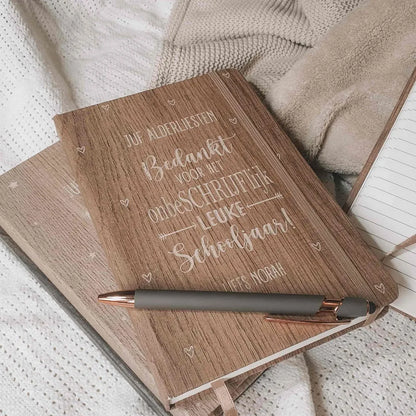 JUF ALDERLIESTEN
Bedankt
VOOR HET
onbeSCHRIJFlijk
LEUKE
Schooljaar!
LIEFS NORAH